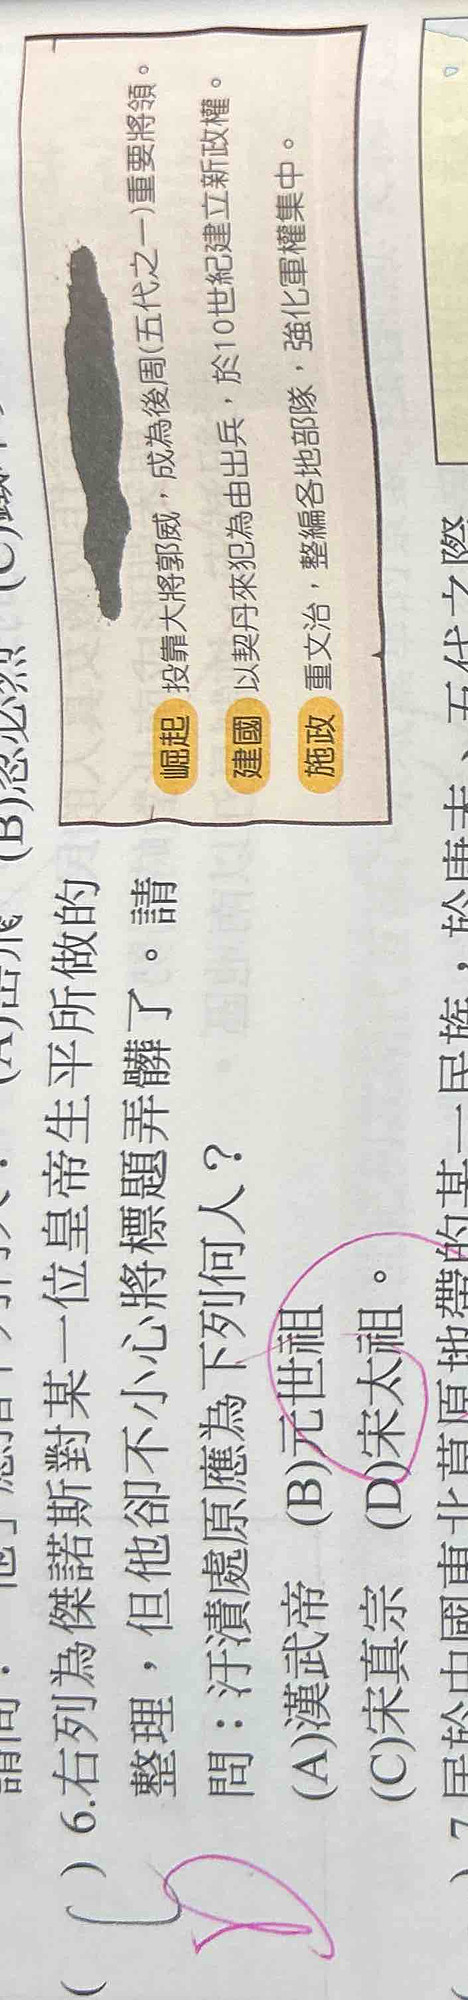 (B)忽必烈
( ) 6.右列為傑諾斯對某一位皇帝生平所做的
整理，但他卻不小心將標題弄髒了。請
問：汙漬處原應為下列何人？
(A)漢武帝 (B)元世祖
(C)宋真宗 (D)宋太祖。
D
崛起 投靠大將郭威，成為後周(五代之一)重要將領。
建國 以契丹來犯為由出兵，於10世紀建立新政權。
施政 重文治，整編各地部隊，強化軍權集中。
) 7.居於中國東北草原地帶的某一民族，於唐末、五代之際